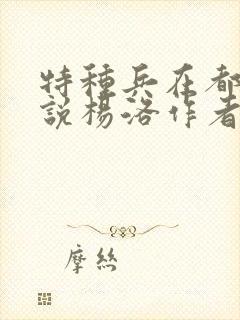 特種兵在都
說楊洛作者
摩絲